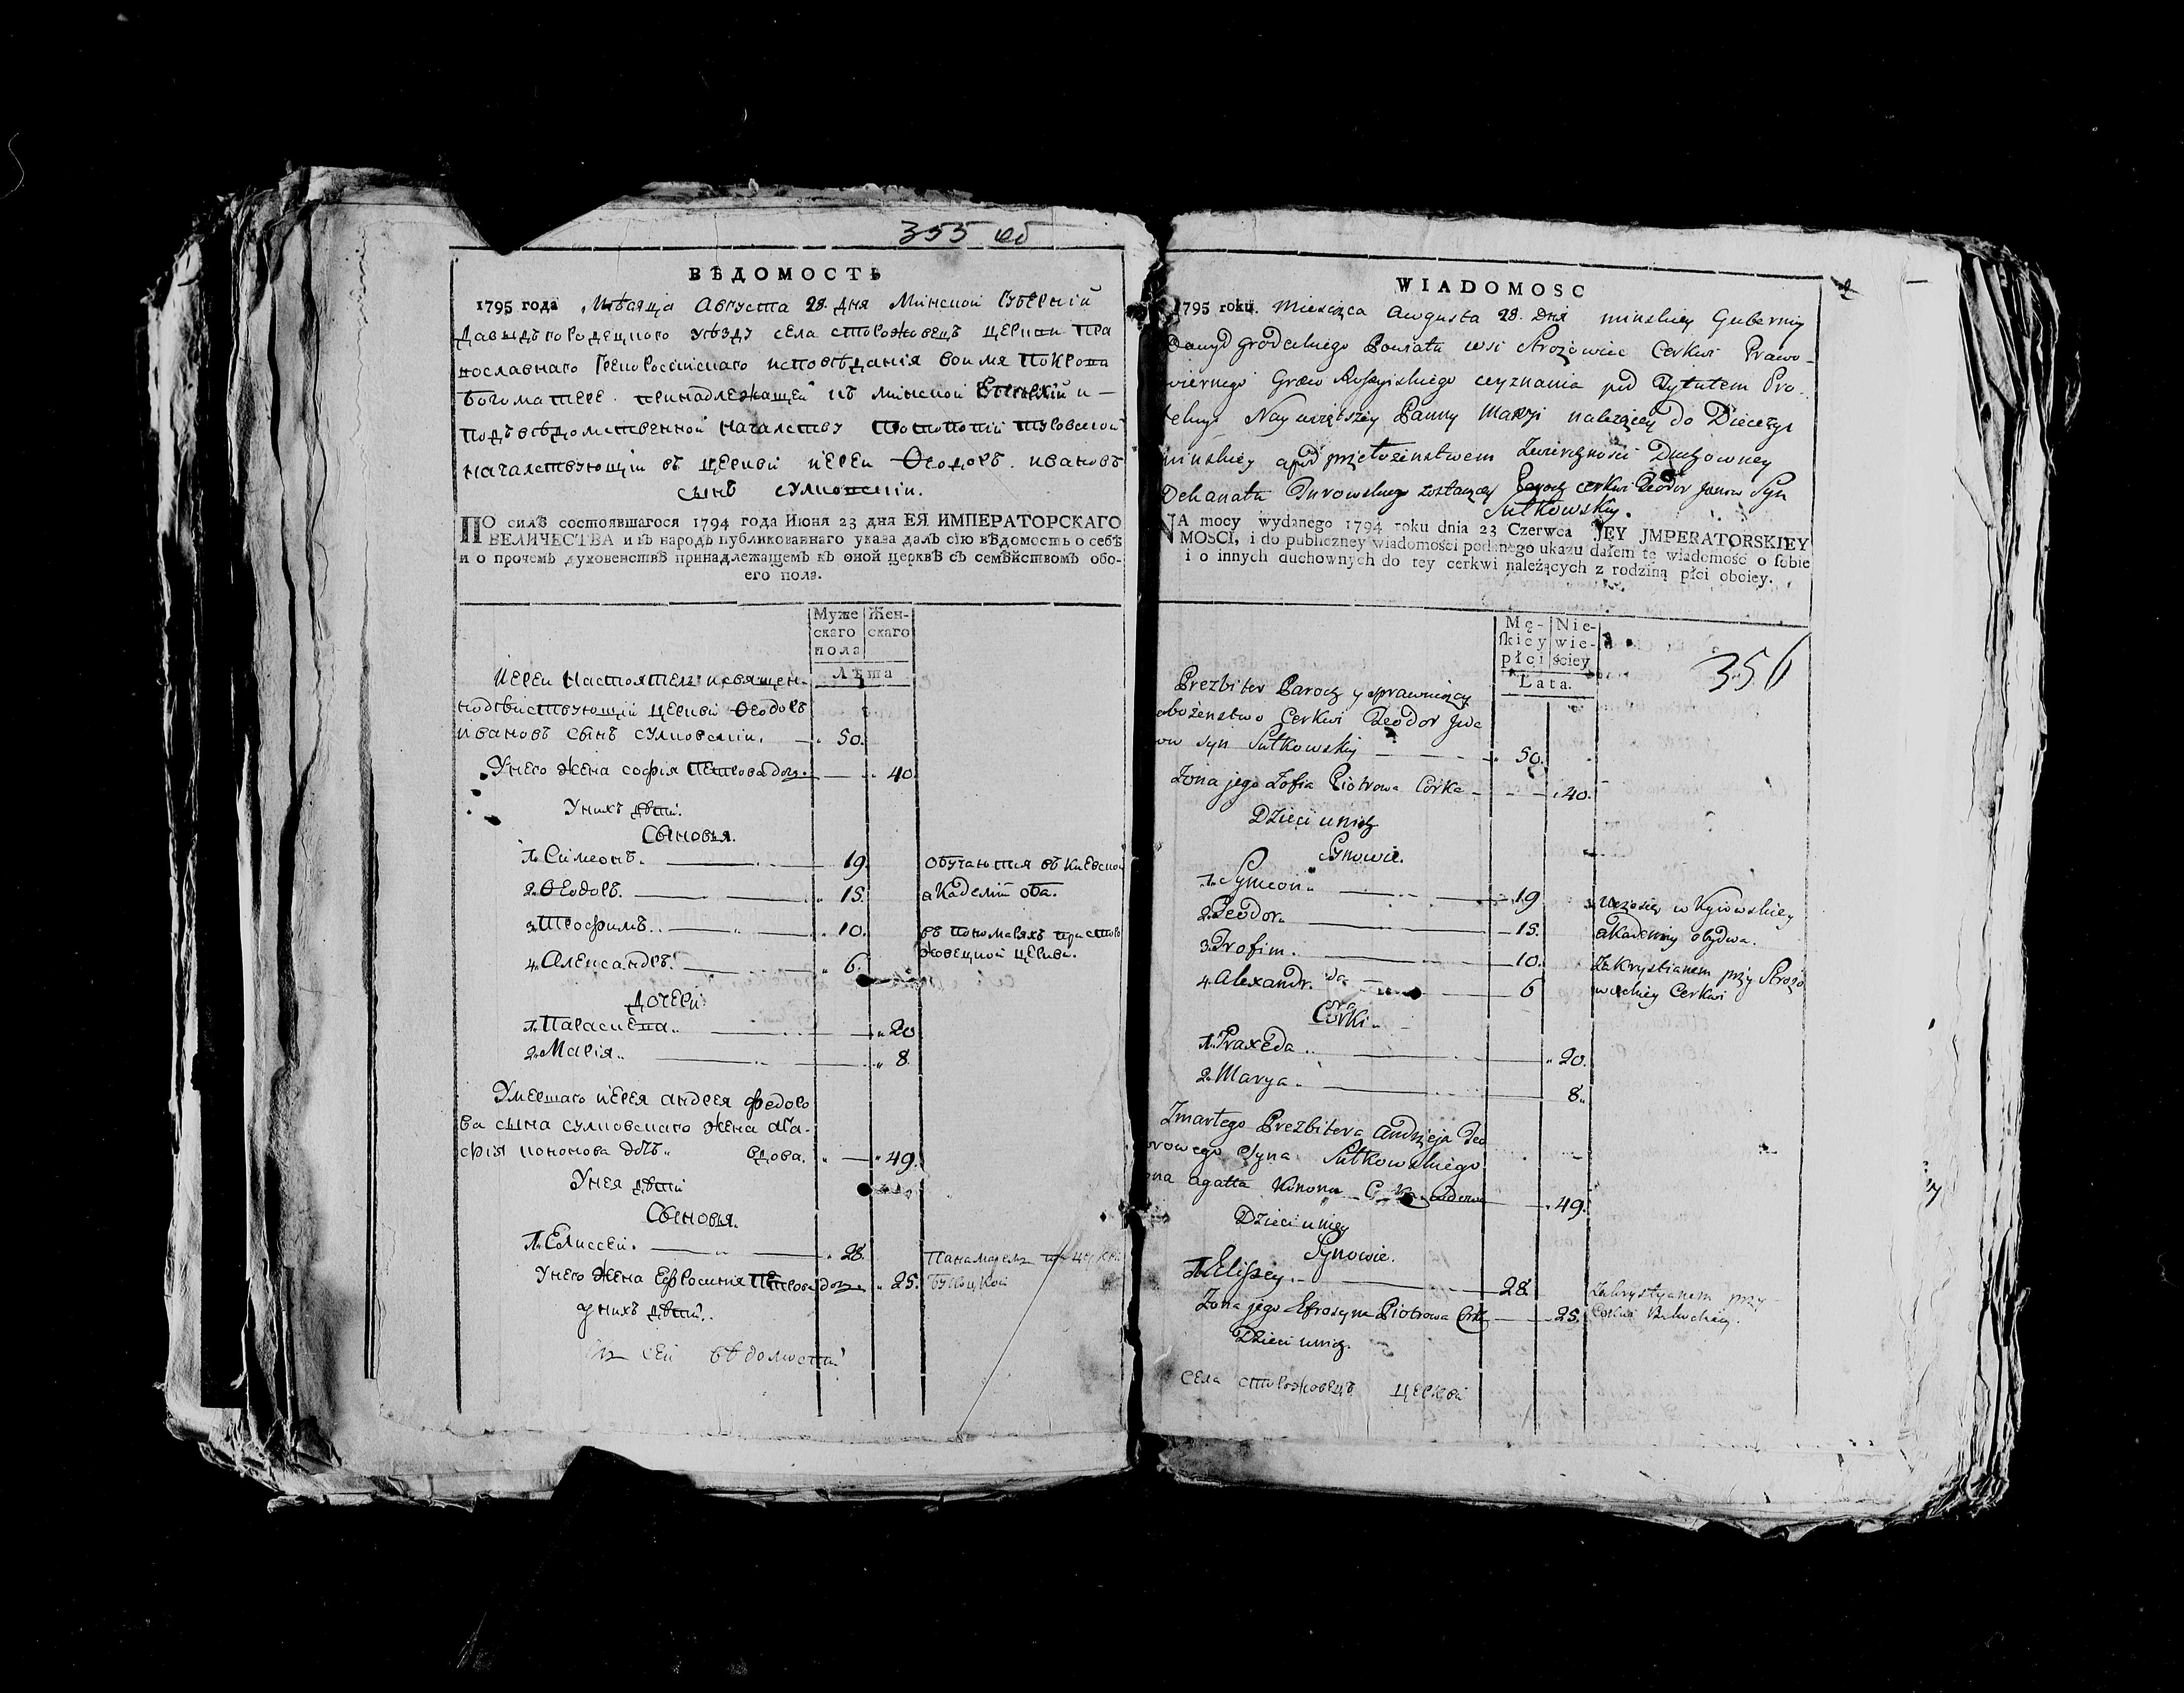 355 об
ВѢДОМОСТЬ
1795 года Мѣсяца Августа 28. дня Минской Губернїй
Давыдъгородецкого уѣзду села сторожовецъ церкви пра
вославнаго Грекороссїйскаго исповѣданїя воимя Покрова
Богоматере принадлежащей къ минской Епархїй и —
подъвѣдомственной началству Протопопїй туровской
началствующїи въ церкви иереи Ѳеодоръ ивановъ
сынъ сулковскїи.
ПО силѣ состоявшагося 1794 года Июня 23 дня ЕЯ ИМПЕРАТОРСКАГО
ВЕЛИЧЕСТВА и въ народъ публикованнаго указа далъ сїю вѣдомость о себѣ
и о прочемъ духовенствѣ принадлежащемъ къ оной церквѣ съ семѣйствомъ обо-
его пола.
Муже Жен-
скаго скаго
пола
Лѣта
Иереи Настоятель и священ-
нодѣиствующїй церкви Ѳеодоръ
ивановъ сынъ сулковскїи. — 50.
Унего жена софїя Петрова доч. — 40.
Унихъ дѣти.
Сыновья.
1. Сїмеонъ. — 19. обучаются въ киевской
2. Ѳеодоръ. — 15. академїи оба.
3. Трофимъ. — 10. въ пономаряхъ при сторо
4. Александръ. — 6. жовецкой церкви.
Дочери
1. Параскева. — 20
2. Марїя. — 8.
Умершаго иерея андрея федоро
ва сына сулковскаго жена ага-
фїя кононова дочъ вдова. — 49.
Унея дѣти
Сыновья.
1. Елиссеи. — 28. Панамарем при церкви
Унего жена Ефросинїя Петрова доч. 25. Буицкой
унихъ дѣти.
сей вѣдомости
WIADOMOSC
1795 roku. Miesiąca Awgusta 28. Дня minskiey Gubernij
Dawyd grodeckiego Powiatu wsi Strożowiec Cerkwi Prawo-
wiernego Greko Rossyiskiego wyznania pod Tytułem Pro-
tekcyi Nayświętszey Panny Maryi należącey do Diecezyi
minskiey a pod przełożenstwem Zwierzchności Duchowney
Dekanatu Turowskiego zostaiącey Paroch cerkwi Teodor Janow Syn
Sulkowskiy.
NA mocy wydanego 1794 roku dnia 23 Czerwca JEY JMPERATORSKIEY
MOSCI, i do publiczney wiadomości podanego ukazu dałem tę wiadomość o sobie
i o innych duchownych do tey cerkwi należących z rodziną płci oboiey.
Mę- Nie-
skiey wie-
płci ściey
Lata.
356
Prezbiter Paroch y sprawuiący
nabożenstwo Cerkwi Teodor Jwa
now syn Sulkowskiy — 50.
Zona jego Zofia Piotrowa Corka — 40.
Dzieci u nich
Synowie.
1. Symeon — 19 uczosię w Kyiowskiey
2. Teodor — 15. akademiy obydwa.
3. Trofim. — 10. Zakrystianem przy Strożo
4. Alexandr. — 6 wieckiey Cerkwi
Corki
1. Praxeda — 20.
2. Marya — 8.
Zmarłego Prezbitera Andrzeja Teo
dorowego Syna Sulkowskiego
żona Agatta Konona Corka wdowa — 49.
Dzieci u niey
Synowie.
1. Elissey. — 28. Zakrystyanem przy
Zona jego Efrosyna Piotrowa Corka — 25. Cerkwi
Dzieci u nich.
села сторожовецъ церкви